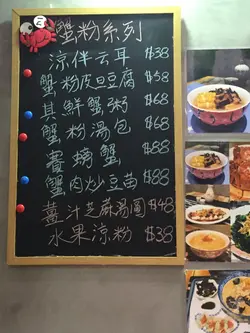 蟹粉系列
涼伴云耳 $38
蟹粉皮旦豆腐 $58
其鮮蟹粥 $68
蟹粉湯包 $68
賽螃蟹 $88
蟹肉炒豆苗 $88
薑汁芝蔴湯圓 $48
水果涼粉 $38